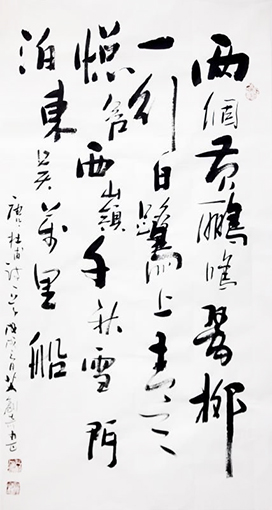 两個黄鸝鳴翠柳
一行白鷺上青天
窓含西嶺千秋雪門
泊東吴萬里船
唐杜甫詩一首